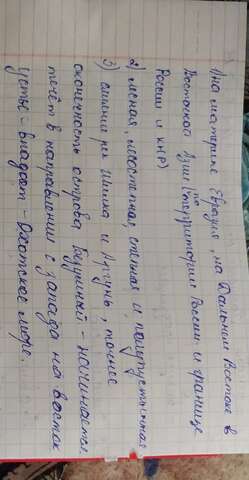 1)на материке Евразия, на Дальнем Востоке в
Восточной Азии (по территории России и границе
России и КНР)
2) лесная, лесостепная, степная и полупустынная
3) слияние рек Шилка и Аргунь, течение
оконечность острова Безумный - начинается.
течёт в направлении с запада на восток
устье - впадает - Охотское море.